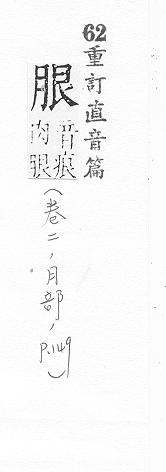 62重訂直音篇
音痕
肉
（卷二，月部，P.149）